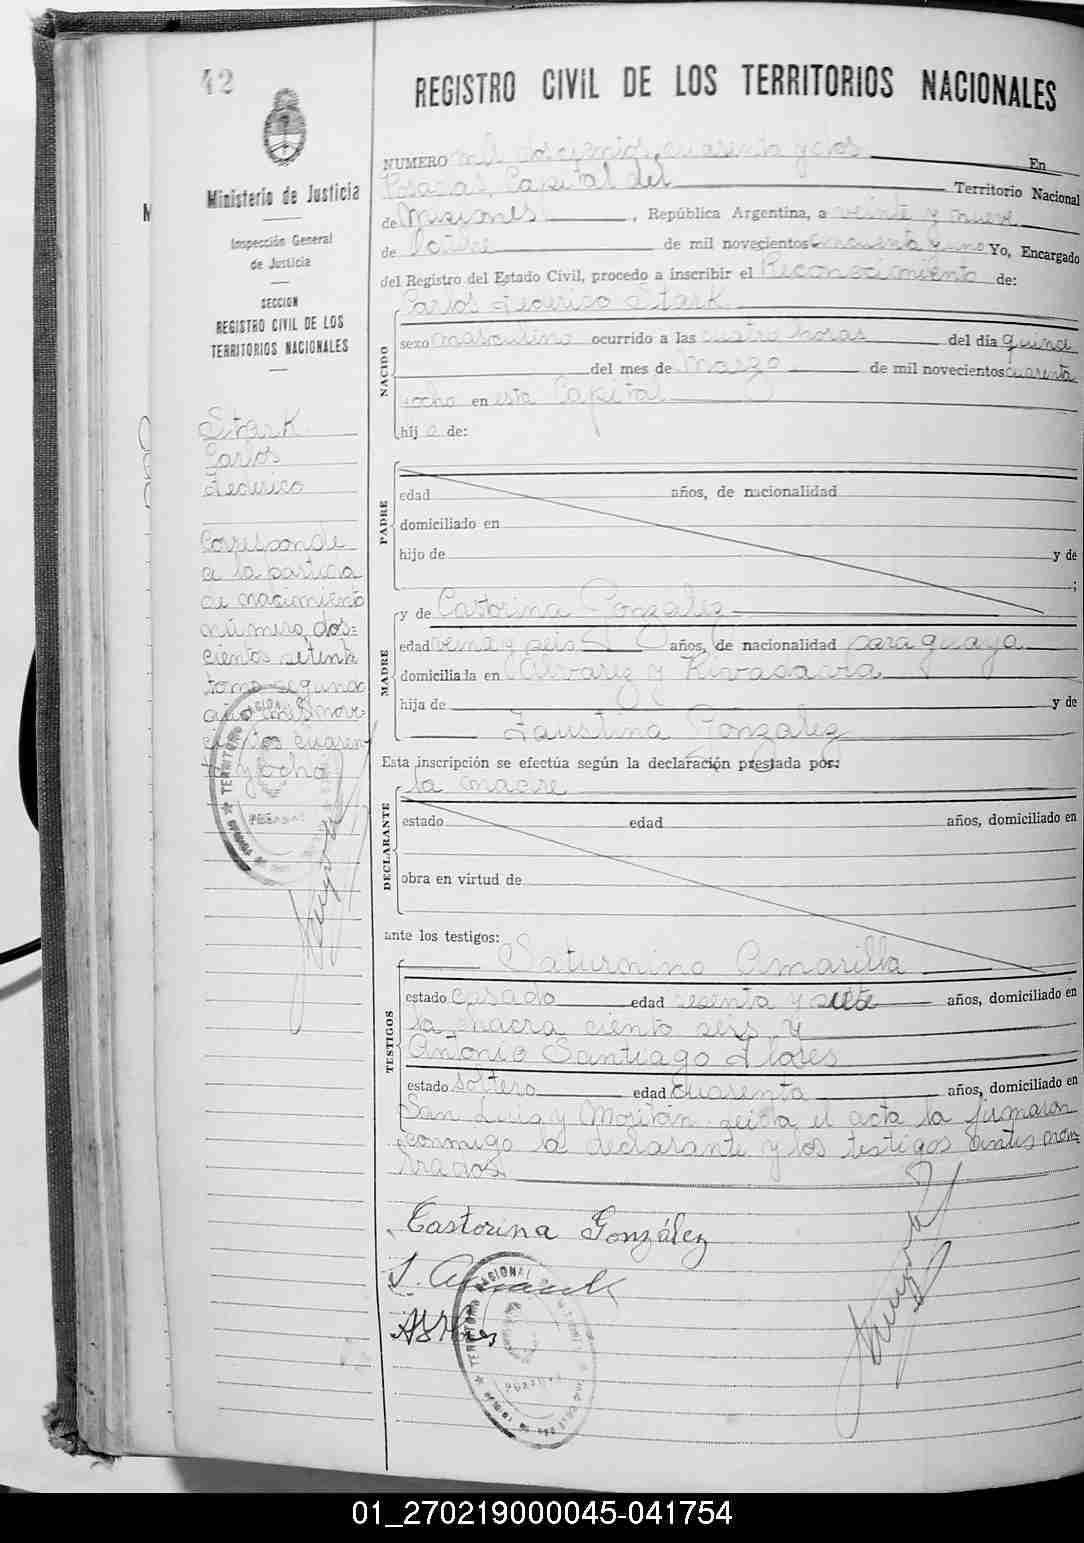 42
REGISTRO CIVIL DE LOS TERRITORIOS NACIONALES
Ministerio de Justicia
Inspección General
de Justicia
SECCION
REGISTRO CIVIL DE LOS
TERRITORIOS NACIONALES
Stark
Carlos
Federico
Corresponde
a la partida
de nacimiento
número dos=
cientos setenta
tomo segundo
año mil nove
cientos cuaren
ta y ocho
NUMERO mil doscientos cuarenta y dos En
Posadas, Capital del Territorio Nacional
de Misiones, República Argentina, a veinte y nueve
de Octubre de mil novecientos cincuenta y uno Yo, Encargado
del Registro del Estado Civil, procedo a inscribir el Reconocimiento de:
NACIDO
Carlos Federico Stark
sexo masculino ocurrido a las cuatro horas del día quince
del mes de Marzo de mil novecientos cuarenta
yocho en esta Capital
hijo de:
PADRE
edad años, de nacionalidad
domiciliado en
hijo de y de
;
MADRE
y de Castorina Gonzalez
edad veinte y seis años, de nacionalidad paraguaya
domiciliada en Alvarez y Rivadavia
hija de y de
Faustina Gonzalez
Esta inscripción se efectúa según la declaración prestada por:
DECLARANTE
la madre
estado edad años, domiciliado en
obra en virtud de
ante los testigos:
TESTIGOS
Saturnino Amarilla
estado casado edad sesenta y siete años, domiciliado en
la chacra ciento seis y
Antonio Santiago Flores
estado soltero edad cuarenta años, domiciliado en
San Luis y Moritán leida el acta la firmaron
conmigo la declarante y los testigos antes nom
brados
Castorina González
S. Amarilla
01_270219000045-041754